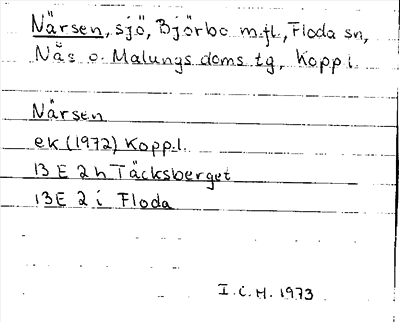 Närsen, sjö, Björbo m.fl., Floda sn,
Näs o. Malungs doms tg, Kopp.l.
Närsen
ek (1972) Kopp.l.
13 E 2 h Täcksberget
13E 2 i Floda
I.C.H. 1973